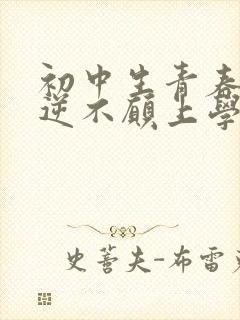 初中生青春
逆不顾上學
史蒈夫-布雷